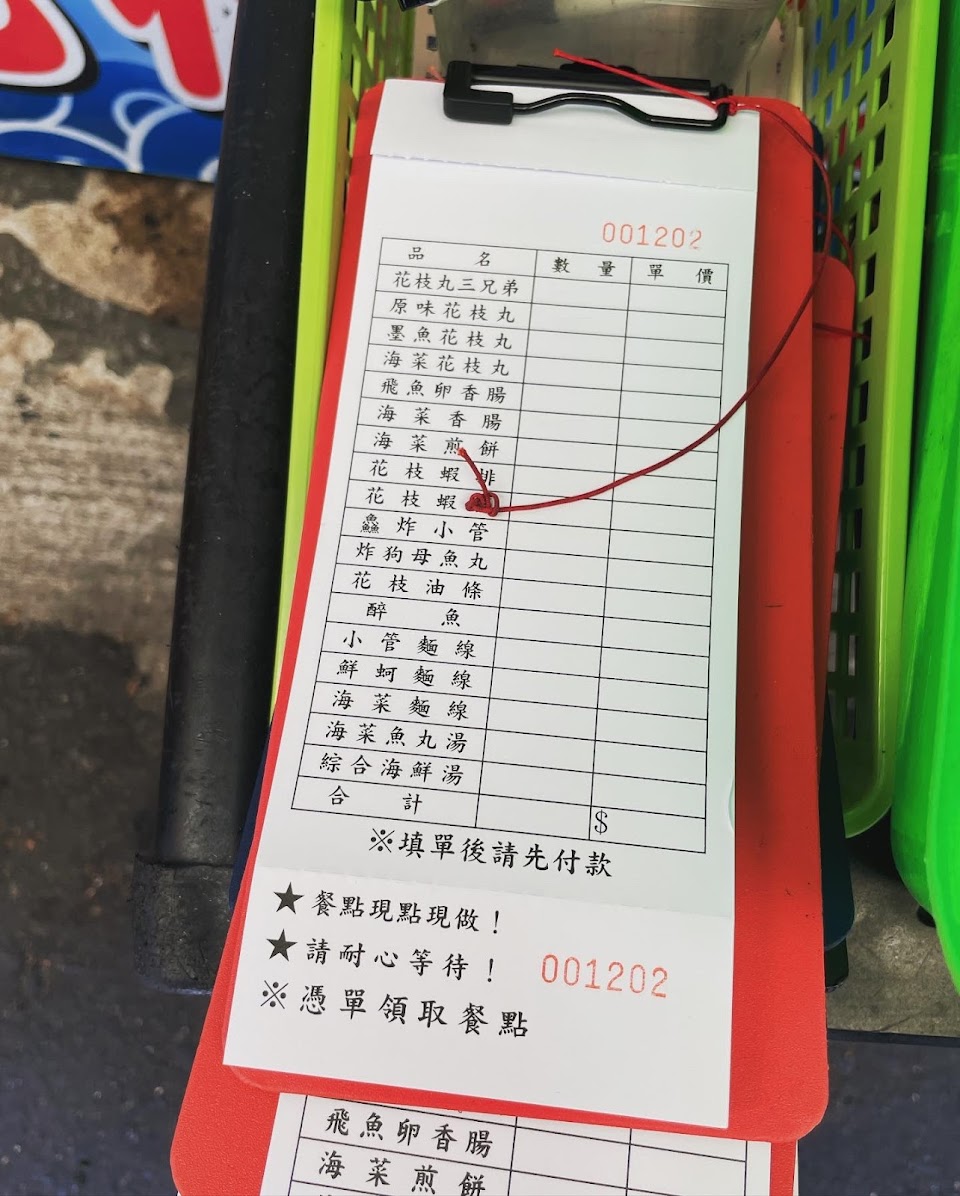 001202
品名 數量 單價
花枝丸三兄弟
原味花枝丸
墨魚花枝丸
海菜花枝丸
飛魚卵香腸
海菜香腸
海菜煎餅
花枝蝦排
花枝蝦
鱻炸小管
炸狗母魚丸
花枝油條
醉魚
小管麵線
鮮蚵麵線
海菜麵線
海菜魚丸湯
綜合海鮮湯
合計 $
※填單後請先付款
★餐點現點現做！
★請耐心等待！ 001202
※憑單領取餐點
飛魚卵香腸
海菜煎餅